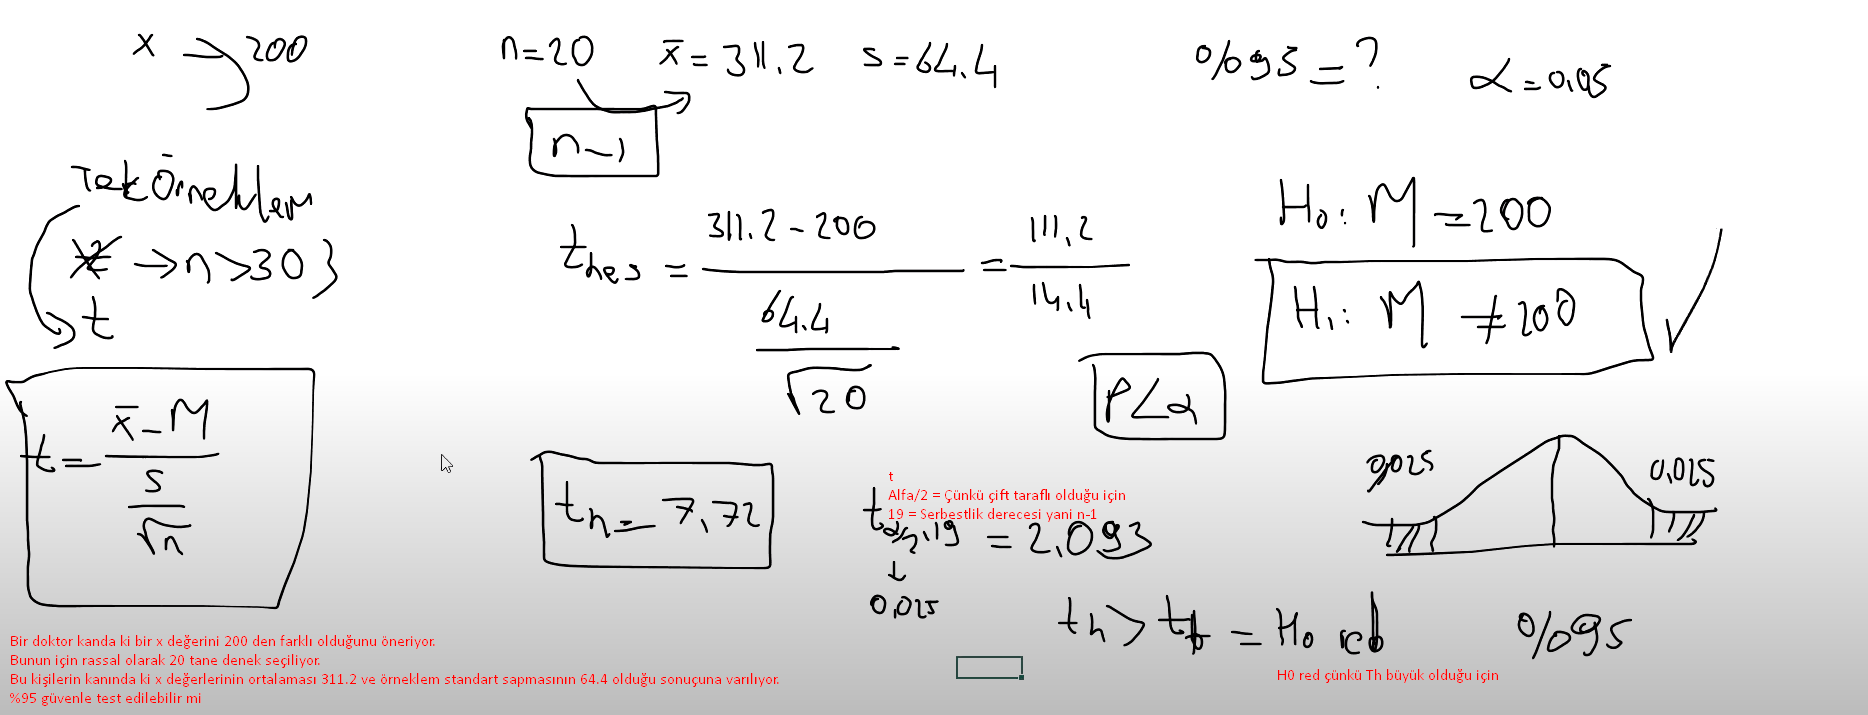 x → 200
n=20 x̄ = 311.2 s = 64.4
%95 = ? α = 0,05
n-1
Tek Örneklem
z → n > 30 }
t
t = (x̄ - M) / (s / √n)
t hes = (311.2 - 200) / (64.4 / √20) = 111,2 / 14,4
H₀: M = 200
H₁: M ≠ 200
P < α
t h = 7,72
t
Alfa/2 = Çünkü çift taraflı olduğu için
19 = Serbestlik derecesi yani n-1
t α/2,19 = 2.093
↓
0,025
0,025
0,025
t h > t t = H₀ red
%95
H0 red çünkü Th büyük olduğu için
Bir doktor kanda ki bir x değerini 200 den farklı olduğunu öneriyor.
Bunun için rassal olarak 20 tane denek seçiliyor.
Bu kişilerin kanında ki x değerlerinin ortalaması 311.2 ve örneklem standart sapmasının 64.4 olduğu sonuçuna varılıyor.
%95 güvenle test edilebilir mi